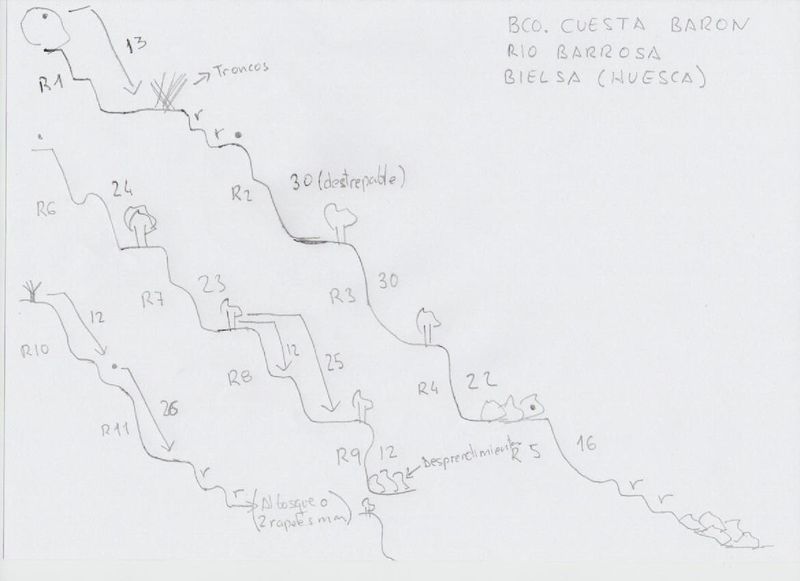 BCO. CUESTA BARON
RIO BARROSA
BIELSA (HUESCA)
13
R1
Troncos
r
r
R2
30 (destrepable)
R3
30
R4
22
R5
16
r
r
R6
24
R7
23
R8
12
25
R9
12
Desprendimiento
R10
12
R11
26
r
r
Al bosque o
(2 rapeles mas)